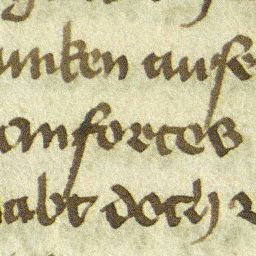 unken ause
anfortes
habt doch